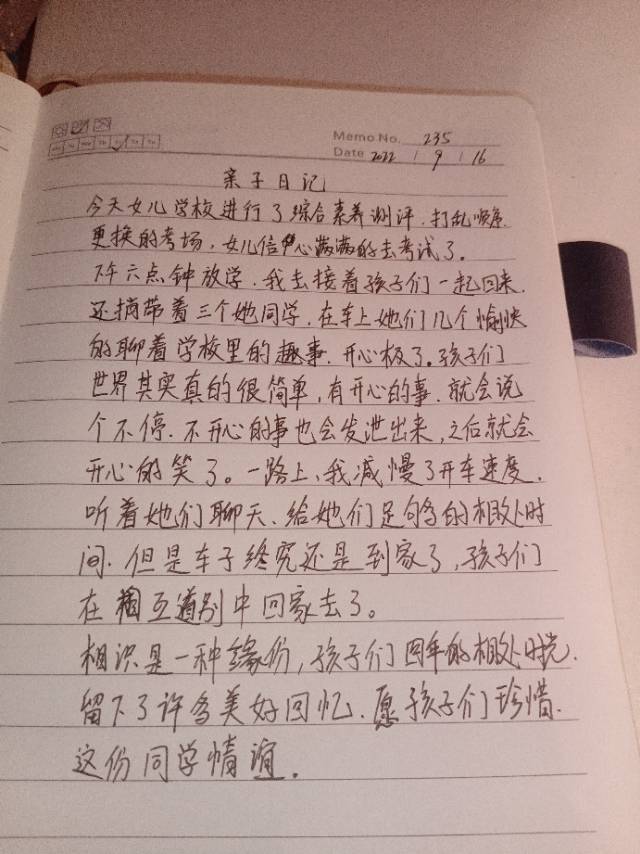 Memo No. 235
Date 2022 / 9 / 16
亲子日记
今天女儿学校进行了综合素养测评.打乱顺序.
更换的考场,女儿信心满满的去考试了。
下午六点钟放学.我去接着孩子们一起回来.
还捎带着三个她同学.在车上她们几个愉快
的聊着学校里的趣事.开心极了。孩子们
世界其实真的很简单,有开心的事.就会说
个不停.不开心的事也会发泄出来,之后就会
开心的笑了。一路上,我减慢了开车速度.
听着她们聊天.给她们足够的相处时
间.但是车子终究还是到家了,孩子们
在相互道别中回家去了。
相识是一种缘份,孩子们四年的相处时光.
留下了许多美好回忆.愿孩子们珍惜.
这份同学情谊.